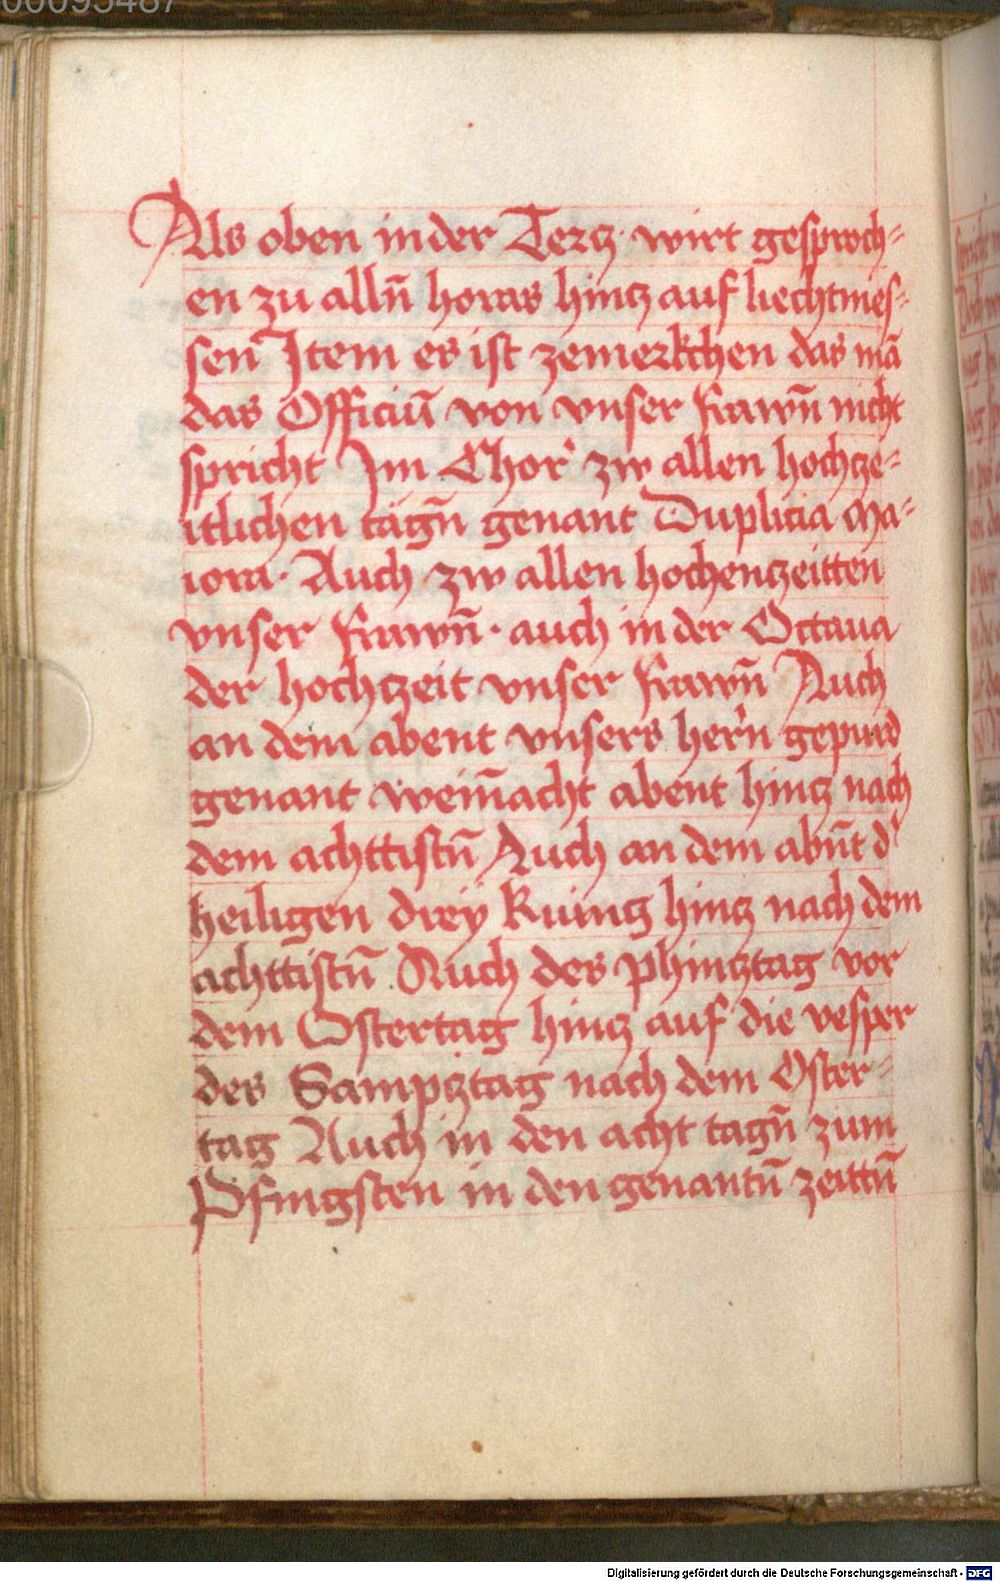 00095487
Als oben in der Tertz · wirt gesproch=
en zu alln̄ horas hintz auf liechtmes=
sen Item es ist zemerkchen das mā
das Officiū von vnser frawn̄ nicht
spricht Im Chor zw allen hochtze=
itlichen tagn̄ genant Duplicia Ma=
iora · Auch zw allen hochentzeitten
vnser frawn̄ · auch in der Octaua
der hochtzeit vnser frawn̄ Auch
an dem abent vnsers hern gepurd
genant wein̄acht abent hintz nach
dem achttistn̄ Auch an dem abn̄t d'
heiligen dreÿ kuing hintz nach dem
achttistn̄ . Auch des phintztag vor
dem Ostertag hintz auf die vesper
des Sampztag nach dem Oster=
tag Auch in den acht tagn̄ zum
Pfingsten in den genantn̄ zeittn̄
Digitalisierung gefördert durch die Deutsche Forschungsgemeinschaft - DFG